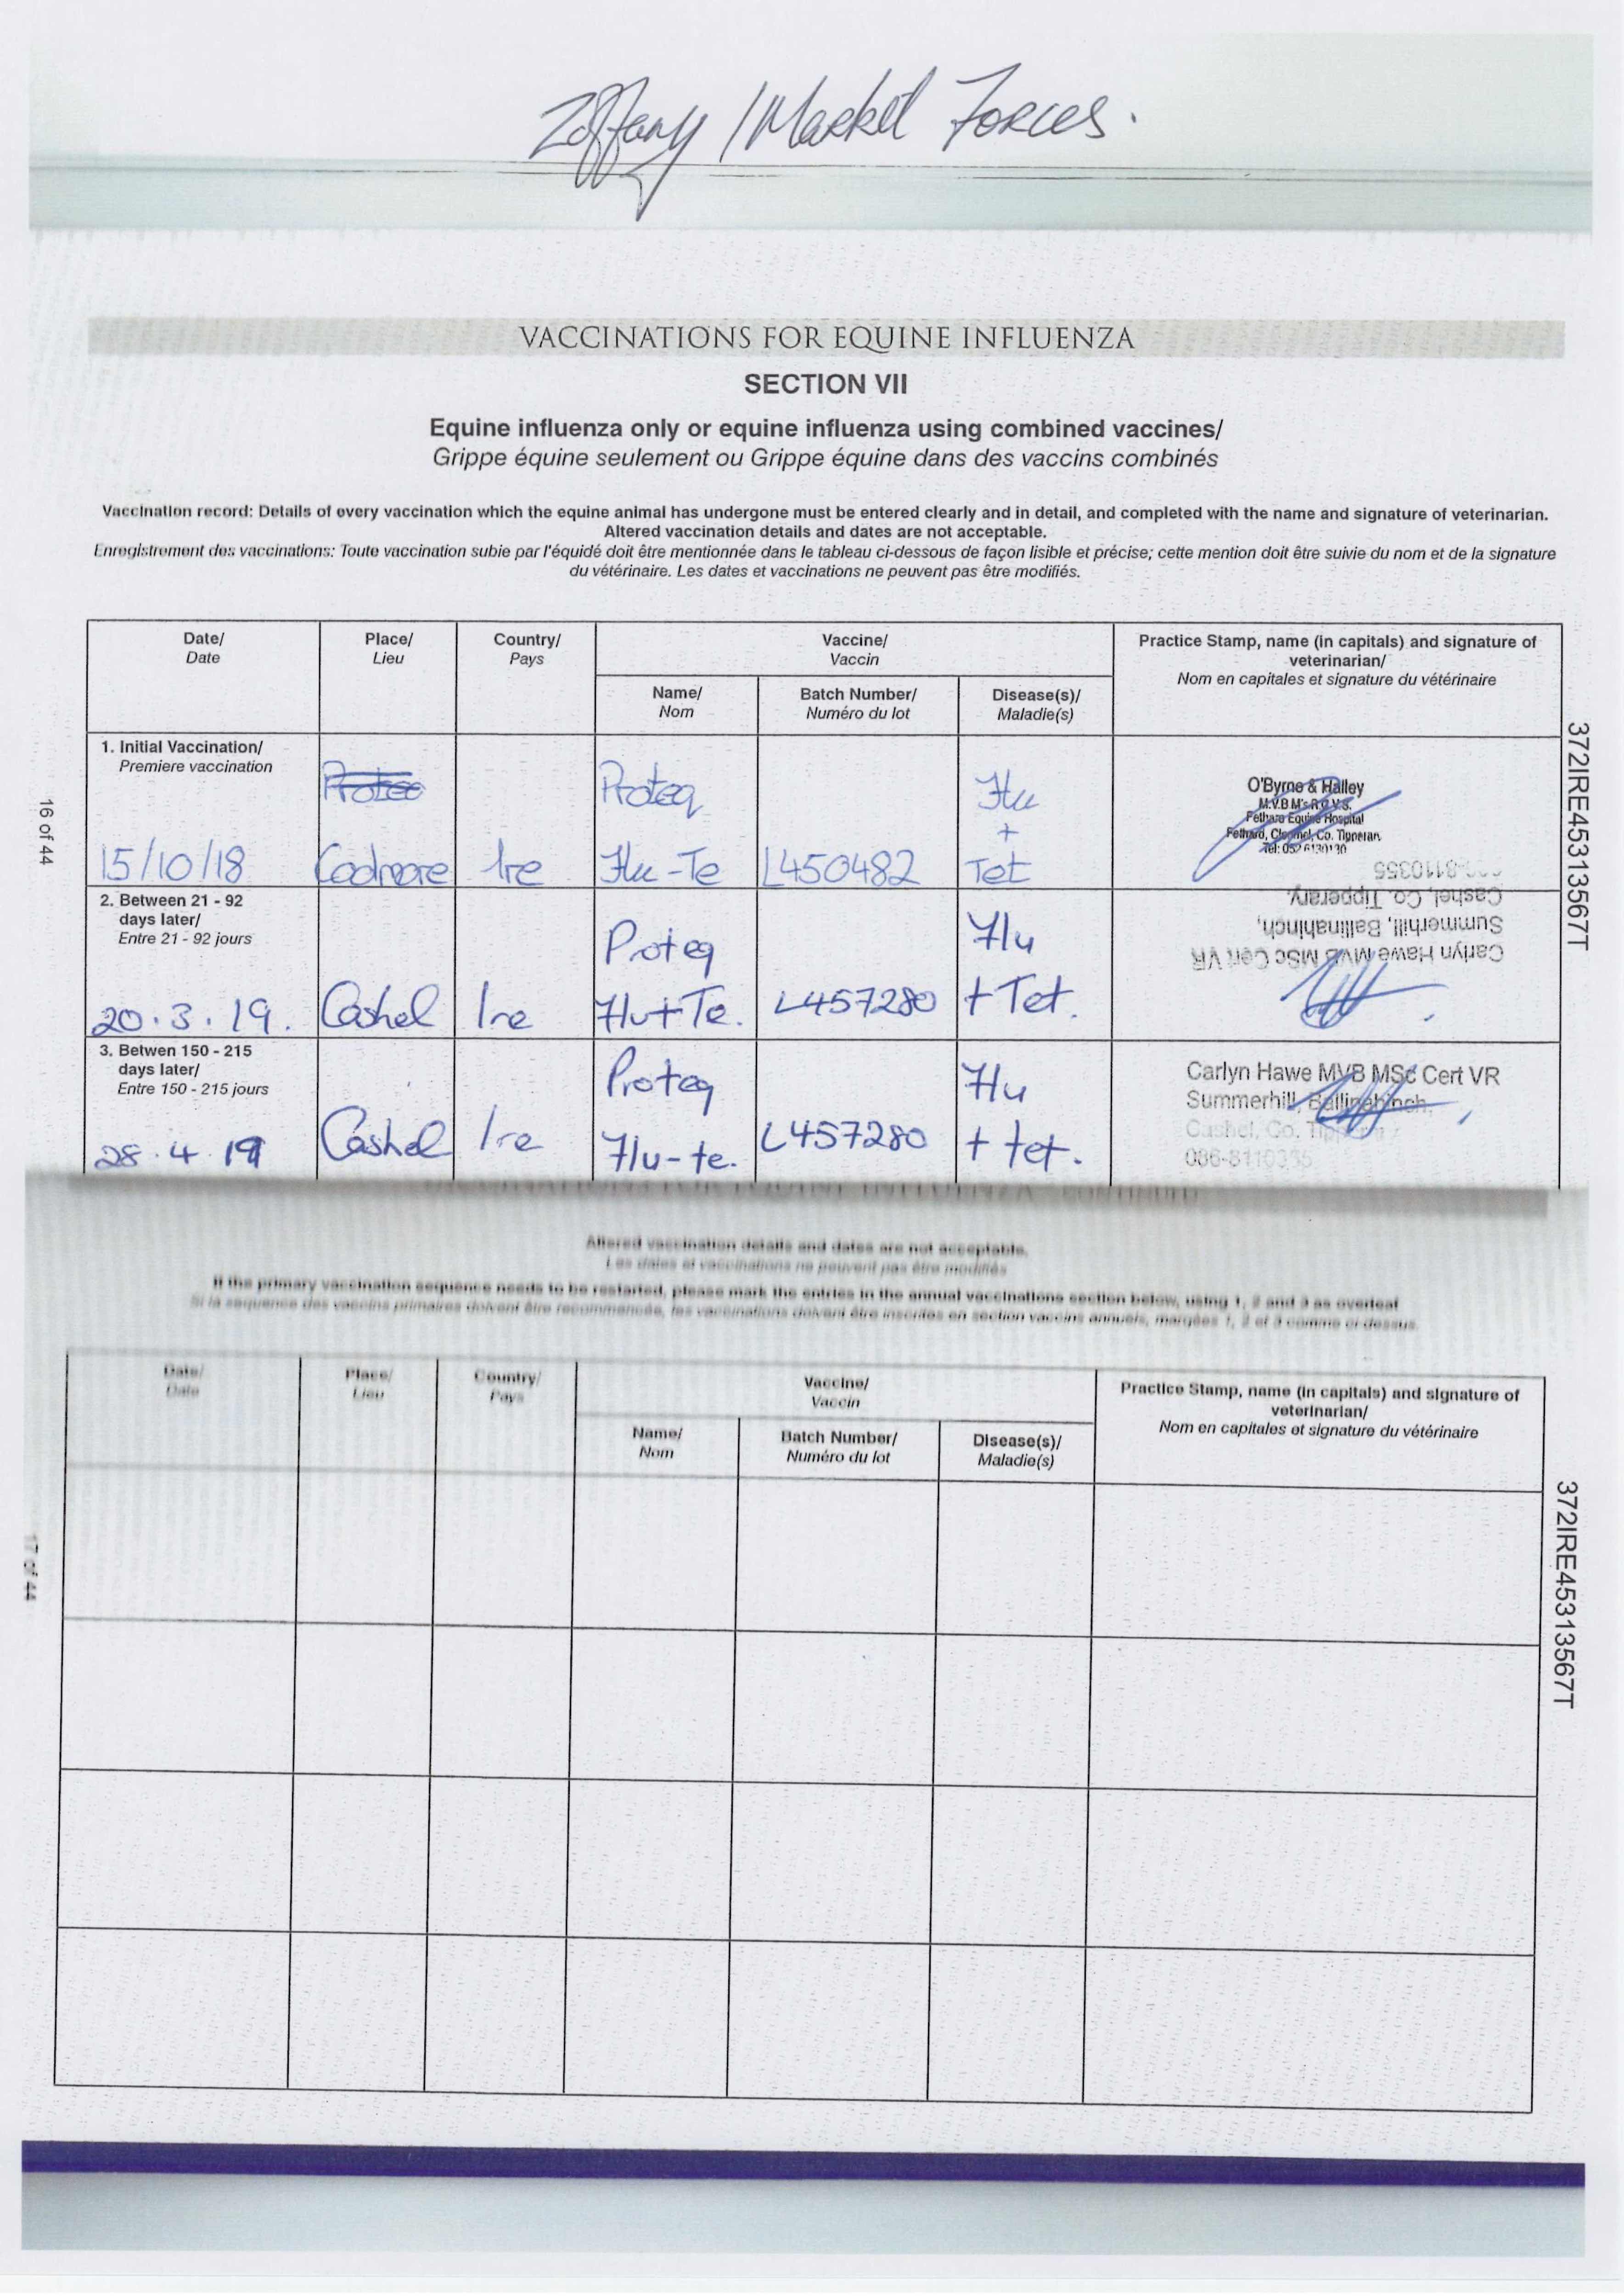 Zoffany / Market Forces.
VACCINATIONS FOR EQUINE INFLUENZA
SECTION VII
Equine influenza only or equine influenza using combined vaccines/
Grippe équine seulement ou Grippe équine dans des vaccins combinés
Vaccination record: Details of every vaccination which the equine animal has undergone must be entered clearly and in detail, and completed with the name and signature of veterinarian.
Altered vaccination details and dates are not acceptable.
Enregistrement des vaccinations: Toute vaccination subie par l'équidé doit être mentionnée dans le tableau ci-dessous de façon lisible et précise; cette mention doit être suivie du nom et de la signature
du vétérinaire. Les dates et vaccinations ne peuvent pas être modifiés.
Date/ Place/ Country/ Vaccine/ Practice Stamp, name (in capitals) and signature of
Date Lieu Pays Vaccin veterinarian/
Nom en capitales et signature du vétérinaire
Name/ Batch Number/ Disease(s)/
Nom Numéro du lot Maladie(s)
1. Initial Vaccination/
Premiere vaccination
Proteq Flu
+
15/10/18 Coolmore Ire Flu-Te L450482 Tet
O'Byrne & Halley
M.V.B M's R.C.V.S.
Fethard Equine Hospital
Fethard, Clonmel, Co. Tipperary.
Tel: 052 6130130
2. Between 21 - 92
days later/
Entre 21 - 92 jours
Proteq Flu
20.3.19. Cashel Ire Flu+Te. L457280 + Tet.
Carlyn Hawe MVB MSc Cert VR
Summerhill, Ballinahinch,
Cashel, Co. Tipperary.
8110355
3. Betwen 150 - 215
days later/
Entre 150 - 215 jours
Proteq Flu
28.4.19 Cashel Ire Flu-te. L457280 + tet.
Carlyn Hawe MVB MSc Cert VR
Summerhill, Ballinahinch,
Cashel, Co.
086-8110355
16 of 44
372IRE45313567T
Altered vaccination details and dates are not acceptable.
Les dates et vaccinations ne peuvent pas être modifiés
If the primary vaccination sequence needs to be restarted, please mark the entries in the annual vaccinations section below, using 1, 2 and 3 as overleaf
Si la sequence des vaccins primaires doivent être recommencés, les vaccinations doivent être inscrites en section vaccins annuels, marqués 1, 2 et 3 comme ci-dessus
Date/ Place/ Country/ Vaccine/ Practice Stamp, name (in capitals) and signature of
Date Lieu Pays Vaccin veterinarian/
Nom en capitales et signature du vétérinaire
Name/ Batch Number/ Disease(s)/
Nom Numéro du lot Maladie(s)
17 of 44
372IRE45313567T